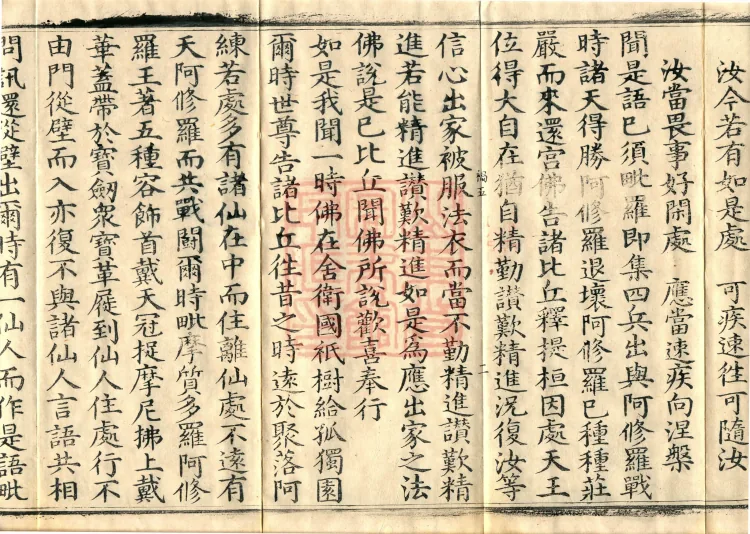 汝今若有如是處　可疾速往可隨汝
汝當畏事好閑處　應當速疾向涅槃
聞是語已須毗羅即集四兵出與阿修羅戰
時諸天得勝阿修羅退壞阿修羅已種種莊
嚴而來還宮佛告諸比丘釋提桓因處天王
位得大自在猶自精勤讚歎精進況復汝等
信心出家被服法衣而當不勤精進讚歎精
進若能精進讚歎精進如是為應出家之法
佛說是已比丘聞佛所說歡喜奉行
如是我聞一時佛在舍衛國祇樹給孤獨園
爾時世尊告諸比丘往昔之時遠於聚落阿
練若處多有諸仙在中而住離仙處不遠有
天阿修羅而共戰鬪爾時毗摩質多羅阿修
羅王著五種容飾首戴天冠捉摩尼拂上戴
華蓋帶於寶劒眾寶革屣到仙人住處行不
由門從壁而入亦復不與諸仙人言語共相
問訊還從壁出爾時有一仙人而作是語毗